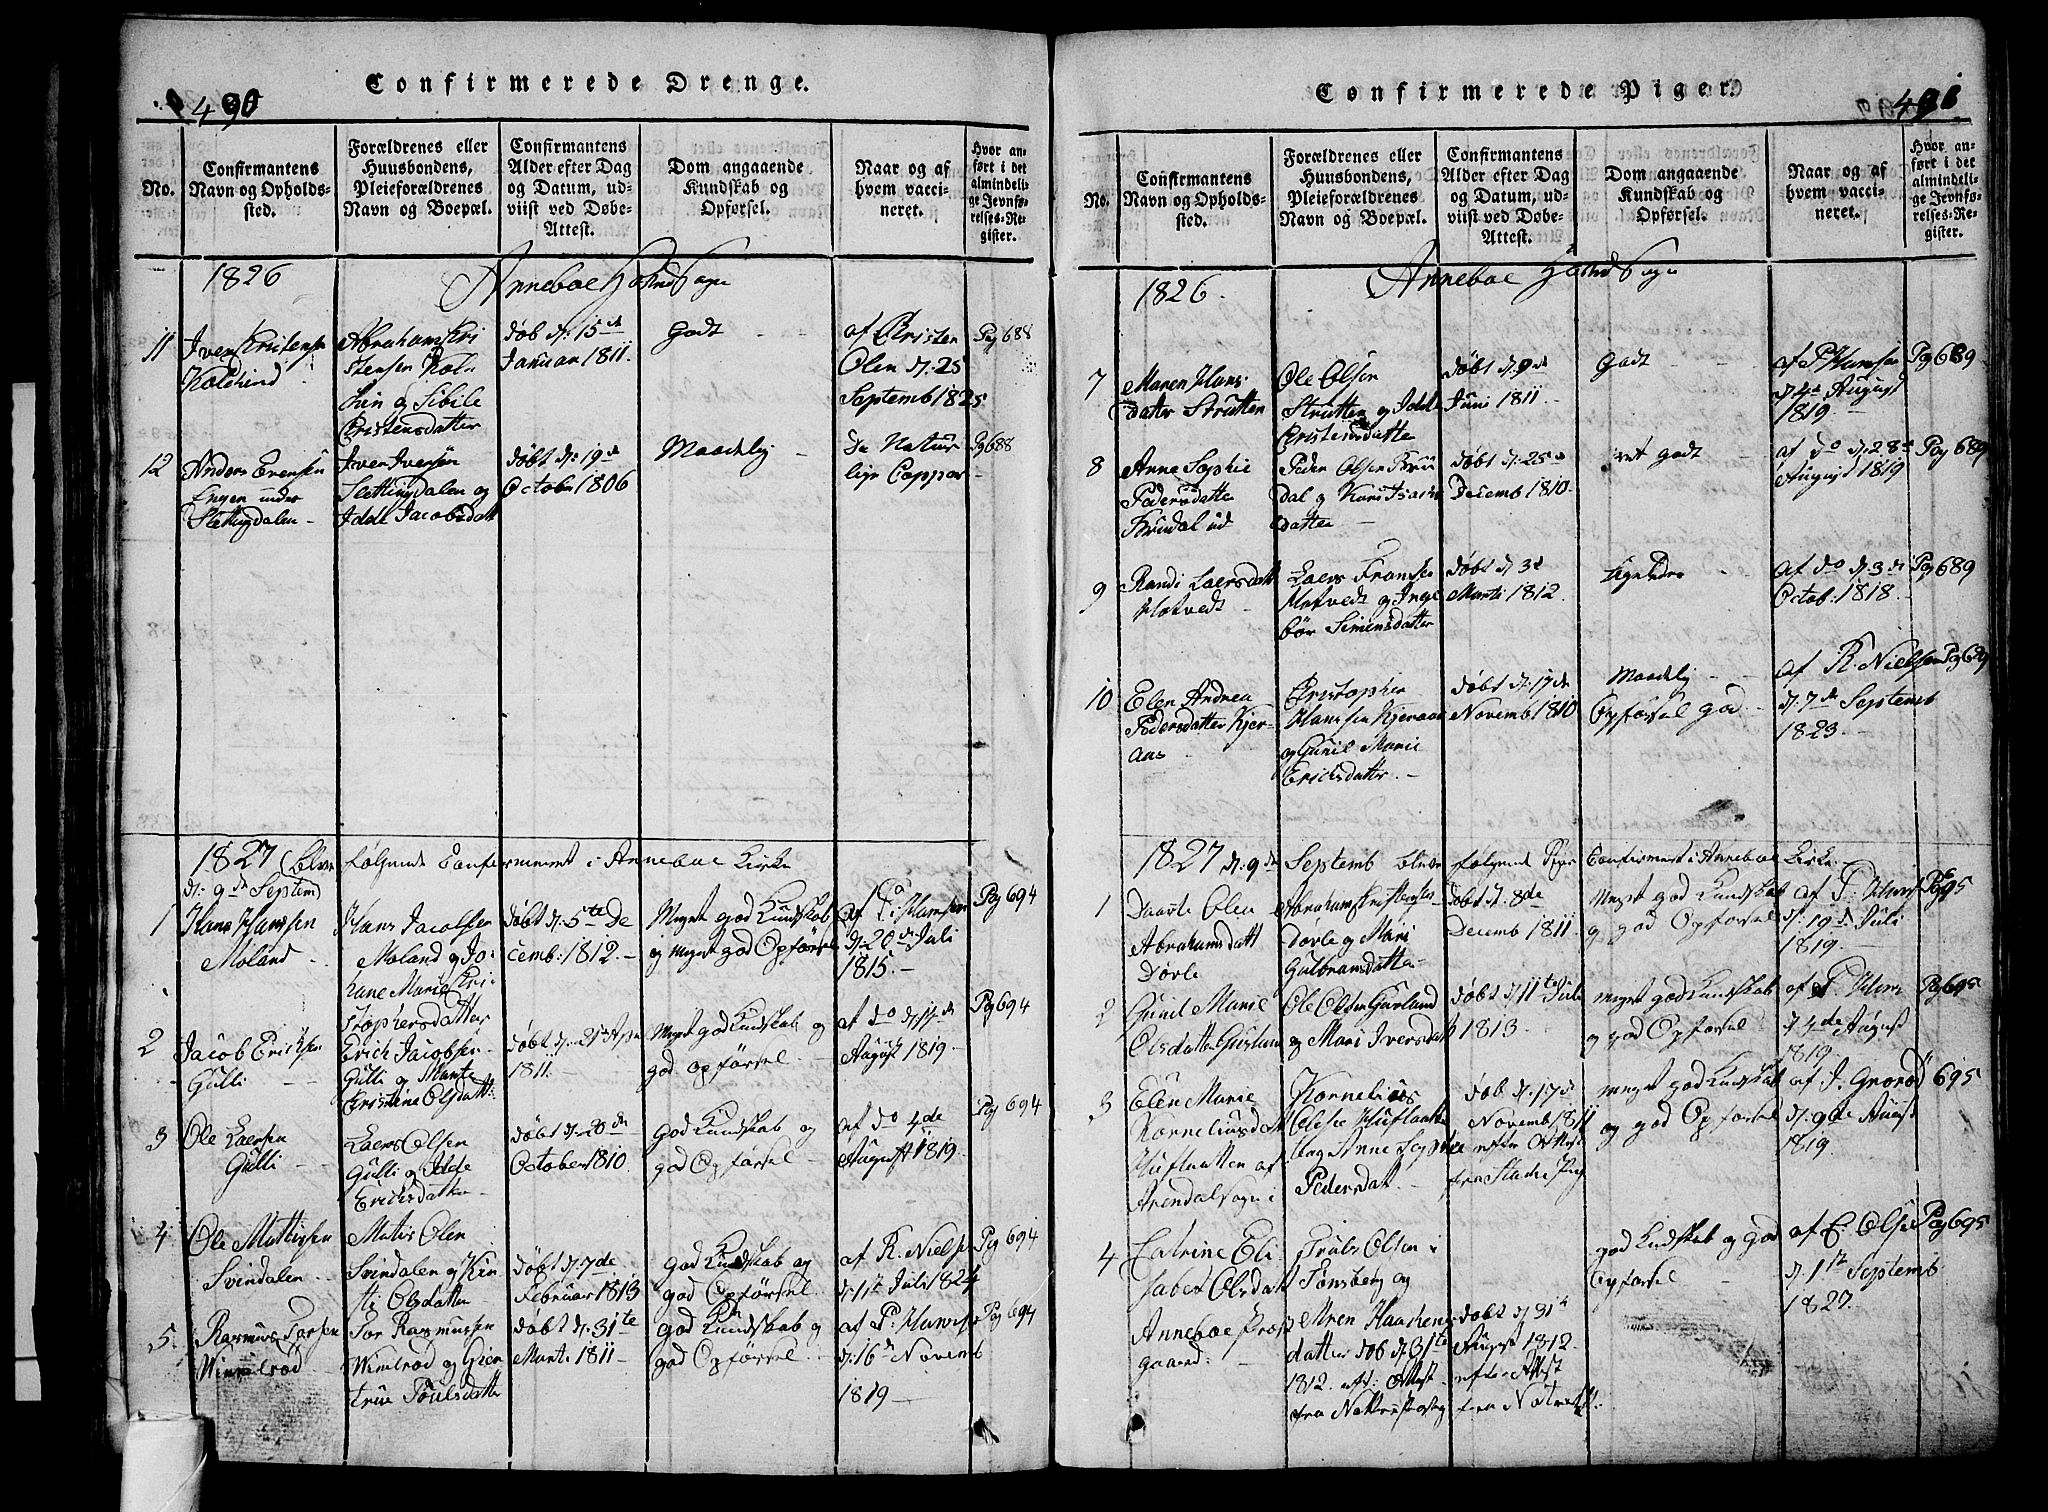 Confirmerede Drenge.
490
No.
Confirmantens
Navn og Opholds-
sted.
Forældrenes eller
Huusbondens,
Pleieforældrenes
Navn og Boepæl.
Confirmantens
Alder efter Dag
og Datum, ud-
viist ved Døbe-
Attest.
Dom angaaende
Kundskab og
Opførsel.
Naar og af
hvem vacci-
neret.
Hvor an-
ført i det
almindeli-
ge Jevnfø-
relses-Re-
gister.
1826
Anneboe Sogn
11
Iver Kristensen
Abrahams Kri
stensen
og Sibile
Cristensdatter
døb d: 15de
Januar 1811.
Godt
af Cristen
Olen d: 25
Septemb 1825
Pg 688
12
Anders Evensen
Engen under
Slettingdalen
Iver Iversen
Slettingdalen og
Idde Jacobsdatt
døbt d: 19de
October 1806
Maadelig
De Natur
lige Copper
Pg 688
1827 Blev følgende Confirmeret i Anneboe Kirke
d: 9de Septem
1
Hans Hansen
Moland
Hans Jacobsen
Moland og Jo-
hane Marie Kri-
stophersdatter
døbt d: 5te De
cemb: 1812.
Meget god Kundskab
og meget god Opførsel
af Hansen
d: 20de Juli
1815.
Pg 694
2
Jacob Ericksen
Gulli
Erich Jacobsen
Gulli og Mante
Christine Olsdatt:
døbt d: 21de Apr
1811.
Meget god Kundskab og
god opførsel
af do d: 14de
August 1819.
Pg 694
3
Ole Laersen
Gulli
Laers Olsen
Gulli og Idde
Ericksdatter
døbt d: 20de
October 1810.
god Kundskab og
god Opførsel
af do 4de
August 1819.
Pg 694
4
Ole Mattissen
Svindalen
Matis Olen
Svindalen og Kir
sti Olsdatter
døbt d: 7de
Februar 1813
god Kundskab og
god Opførsel.
af R. Niels
d: 11te Juli 1824
Pg 694
5.
Rasmus Torsen
Wimelrød
Tor Rasmussen
Wimelrød og
døbt d: 31te
Marti 1811
god Kundskab og
god Opførsel.
af P. Hans
d: 16de Novemb
1819
Pg 694
Confirmerede Piger.
491
No.
Confirmantens
Navn og Opholds-
sted.
Forældrenes eller
Huusbondens,
Pleieforældrenes
Navn og Boepæl.
Confirmantens
Alder efter Dag
og Datum, ud-
viist ved Døbe-
Attest.
Dom angaaende
Kundskab og
Opførsel.
Naar og af
hvem vacci-
neret.
Hvor an-
ført i det
almindeli-
ge Jevnfø-
relses-Re-
gister.
1826.
Anneboe Sogn
7
Maren Hans
datter Strutten
Ole Olsen
Strutten og Idde
Cristensdatte
døbt d: 9de
Juni 1811.
Godt
af P Hansen
d 4de August
1819.
Pg 689
8
Anne Sophie
Pedersdatte
Peder Olsen
dal og Kari
datter
døbt d: 25de
Decemb 1810.
ret godt
af do d: 28de
August 1819
Pg 689
9
Randi Laersdatt
Laers Fransen
og Inge
bør Simensdatter
døbt d: 3de
Marti 1812.
af do d 3de
Octob: 1818.
Pg 689
10
Elen Andrea
Pedersdatter Kjer-
aas
Cristopher
Hansen Kjeraas
og Gunil Marie
Ericksdatter.
døbt d: 17de
Novemb 1810
Maadelig
Opførsel god.
af R. Nielsen
d: 7de Septemb
1823.
Pg 689
1827 d: 9de Septemb Blev følgende Piger Confirmeret i Anneboe Kirke.
1
Olea
Abrahamsdatt
Dørle
Abraham
Dørle og Mari
Gulbransdatte
døbt d. 8de
Decemb 1811
Meget god Kundskab
og god Opførsel
af P. Hans
d: 19de Juli
1819.
Pg 695
2
Gunil Marie
Olsdatter
Ole Olsen
og Mari Iversdat
døbt d. 11te Juli
1813.
meget god Kundskab
og god Opførsel
af P. Hans
d 4de August
1819.
Pg 695
3
Elen Marie
Korneliusdatt
af
Arendal Sogn
Kornelius
Olsen
og Anne Sophie
Pedersdat
døb d. 17de
Novemb 1811
efter Attest
fra
meget god Kundskab
og god Opførsel
af J. Grorød
d: 9de August
1819.
695
4
Catrine Eli
sabet Olsdatt
Anneboe Præst
gaard.
Truls Olsen i
Tønsberg og
Maren Haachens
datter døb d. 31te
1812. eft: Attest
fra
døbt d 31te
August 1812.
efter Attest
fra
god Kundskab og god
Opførsel
af E. Olsen
d. 1ste Septemb
1827.
Pg 695